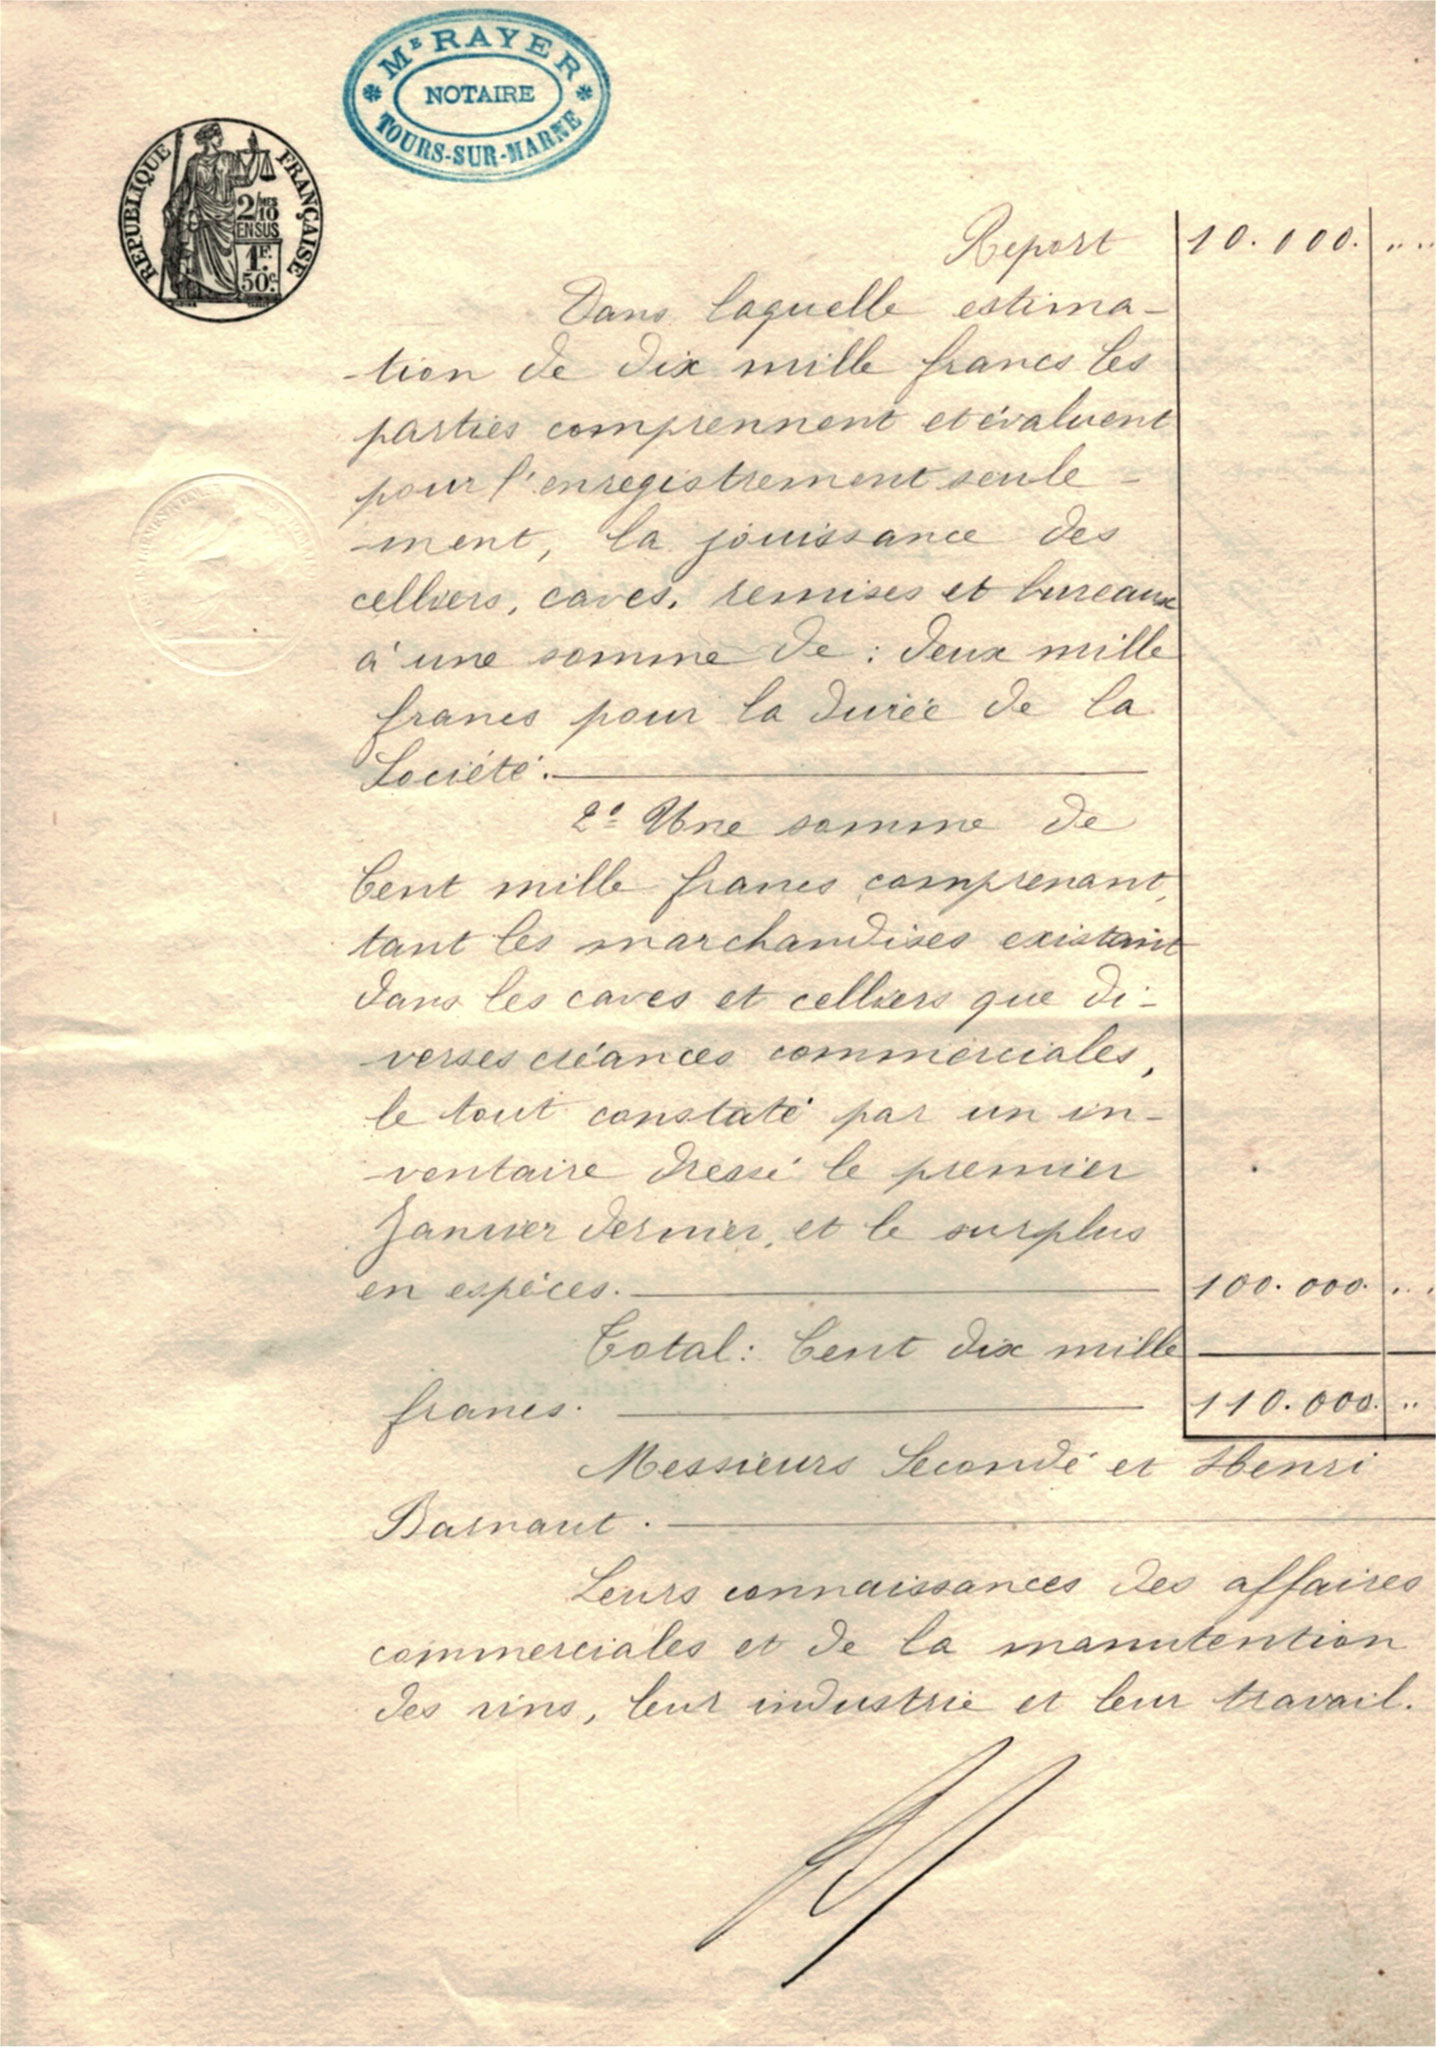 Mᴱ RAYER
NOTAIRE
TOURS-SUR-MARNE
RÉPUBLIQUE FRANÇAISE
2/10 MES
EN SUS
1F.
50c.
Report 10.000. " "
Dans laquelle estima-
-tion de dix mille francs les
parties comprennent et évaluent
pour l'enregistrement seule-
-ment, la jouissance des
celliers, caves, remises et bureaux
à une somme de : deux mille
francs pour la durée de la
Société.
2° Une somme de
Cent mille francs comprenant,
tant les marchandises existant
dans les caves et celliers que di-
-verses créances commerciales,
le tout constaté par un in-
-ventaire dressé le premier
Janvier dernier, et le surplus
en espèces. 100.000. " "
Total : Cent dix mille
francs. 110.000. "
Messieurs Secondé et Henri
Barnaut.
Leurs connaissances des affaires
commerciales et de la manutention
des vins, leur industrie et leur travail.